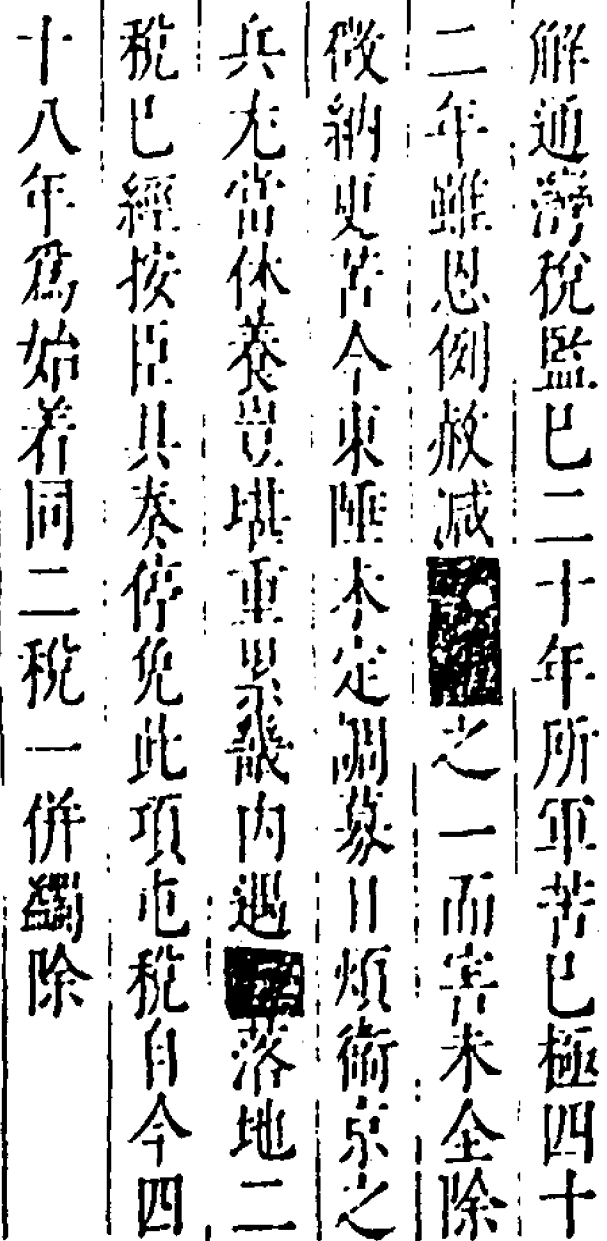 解通灣稅監已二十年所軍苦已極四十
二年雖恩例赦減之一而害未全除
徵納更苦今東陲未定調募日煩衛京之
兵尤當休養豈堪重累畿內遇落地二
稅已經按臣具奏停免此項屯稅自今四
十八年為始着同二稅一併蠲除